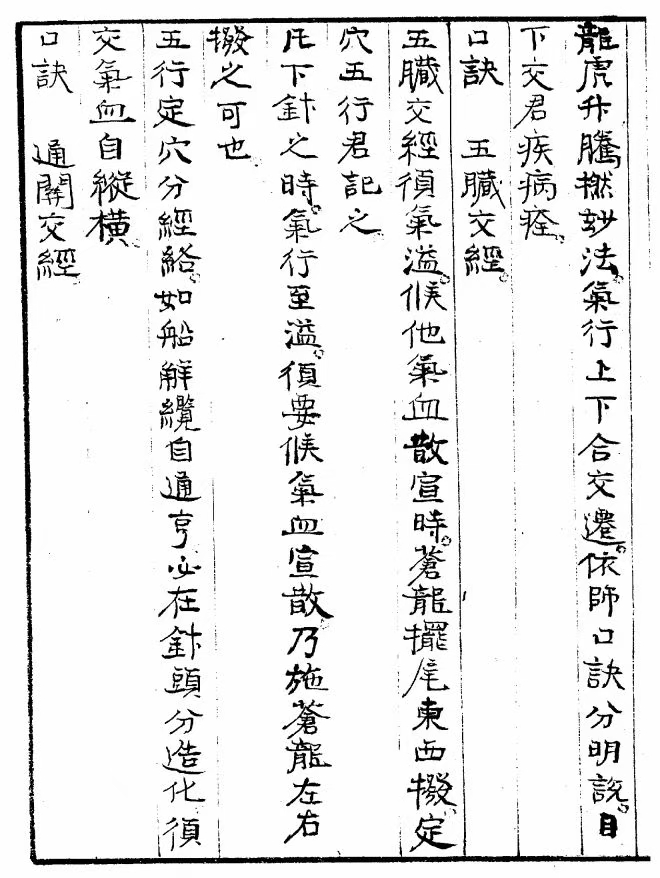 龍虎升騰撚玅法。氣行上下合交遷。依師口訣分明說。目
下交君疾病痊。
口訣　五臟交經。
五臟交經須氣溢。候他氣血散宣時。蒼龍擺尾東西撥定
穴五行君記之。
凡下針之時。氣行至溢。須要候氣血宣散。乃施蒼龍左右
撥之可也。
五行定穴分經絡。如船解纜自通亨必在針頭分造化須
交氣血自縱橫。
口訣　通關交經。